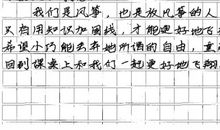 我们是风筝，也是放风筝的人
只当用知识加固线，才能更好地飞
希望小巧能去弃她所谓的自由，重
回到课桌上和我们一起更好地飞翔